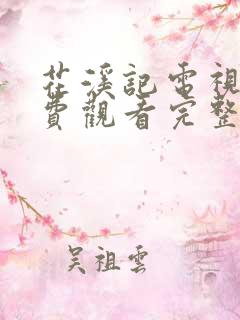 茌溪記電視
費觀看完整
吴祖雲